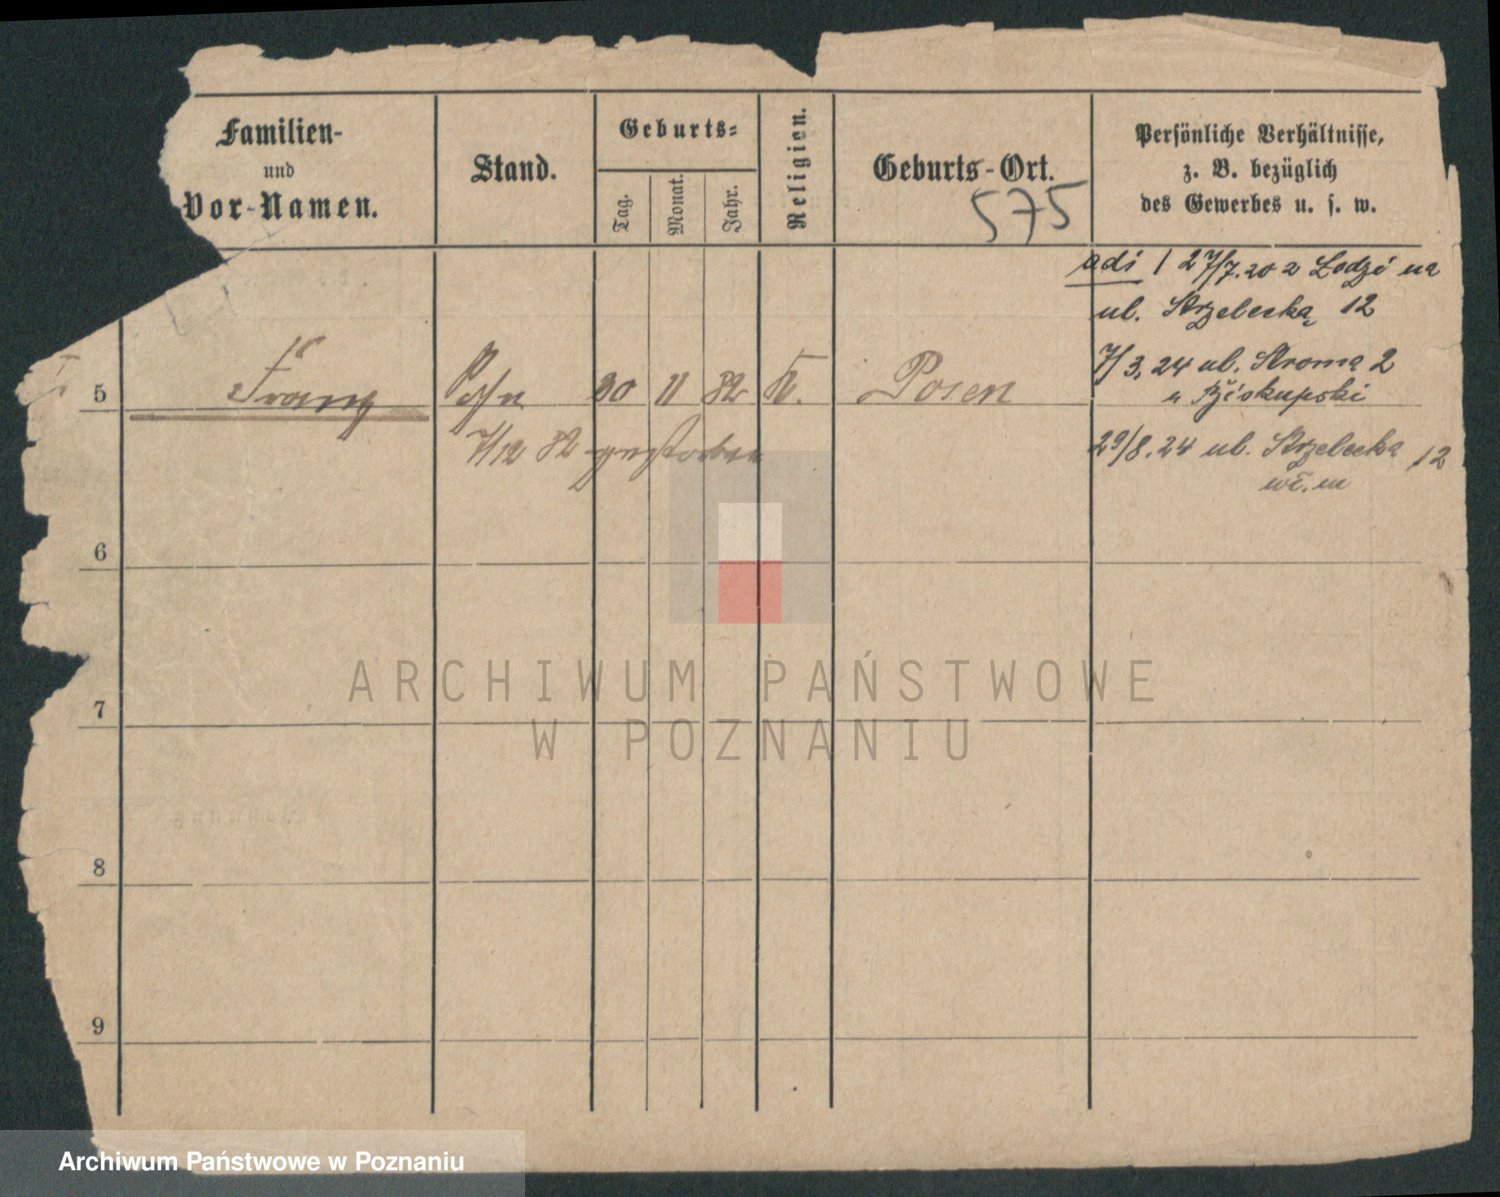 Familien-
und
Vor-Namen.
Stand.
Geburts-
Tag.
Monat.
Jahr.
Religion.
Geburts-Ort.
575
Persönliche Verhältnisse,
z. B. bezüglich
des Gewerbes u. s. w.
adi 1 27/7.20 z Łodzi na
ul. Strzelecką 12
5
Franz
Sohn
30
11
82
K.
Posen
7/3.24 ul. Stroma 2
u Biskupski
7/12 82 gestorben
29/8.24 ul. Strzelecka 12
6
7
8
9
ARCHIWUM PAŃSTWOWE
W POZNANIU
Archiwum Państwowe w Poznaniu